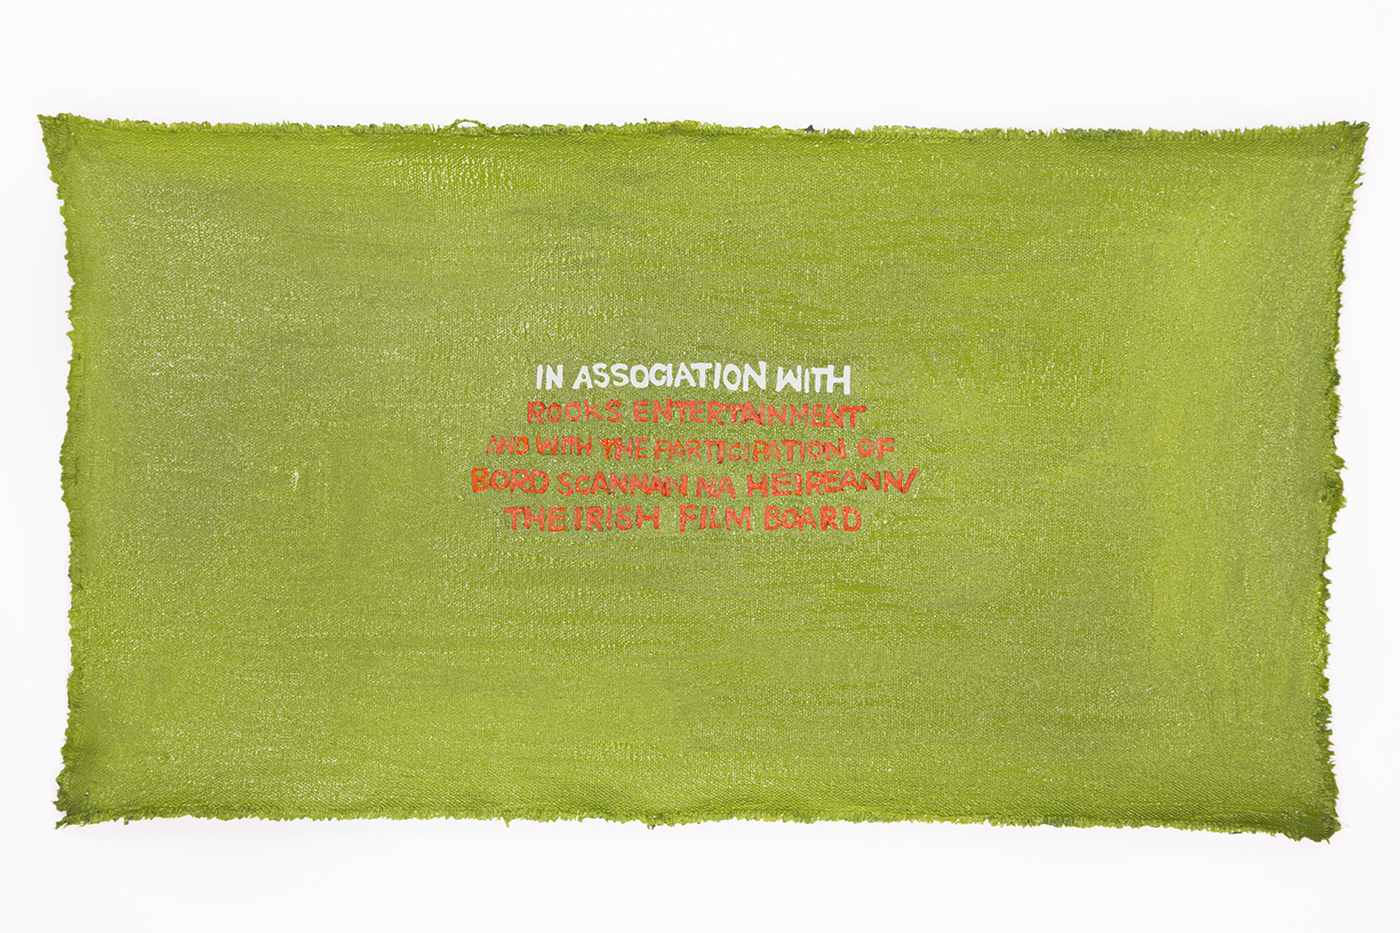 IN ASSOCIATION WITH
ROOKS ENTERTAINMENT
AND WITH THE PARTICIPATION OF
BORD SCANNÁN NA HÉIREANN/
THE IRISH FILM BOARD